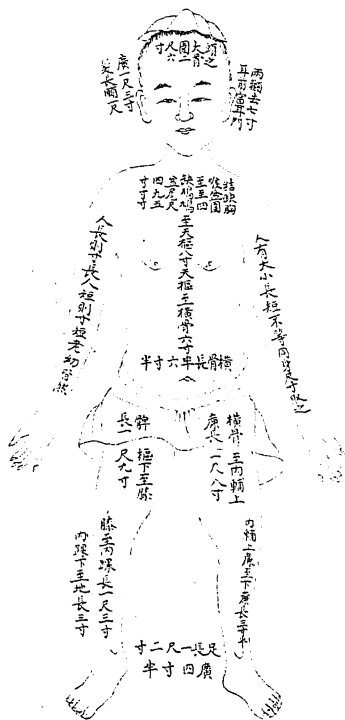 頭之大骨圍二尺六寸
兩顴去七寸
耳前當耳門
廣一尺三寸
結喉至缺盆四寸
胸圍四尺五寸
至天樞八寸天樞至橫骨六寸半
橫骨長六寸半
人有大小長短不等同身尺寸取之
人長則寸長人短則寸短老幼皆然
橫骨至內輔上
廉長一尺八寸
髀樞下至膝
長一尺九寸
內輔上廉至下廉長三寸半
膝至內踝長一尺三寸
內踝下至地長三寸
足長一尺二寸
廣四寸半